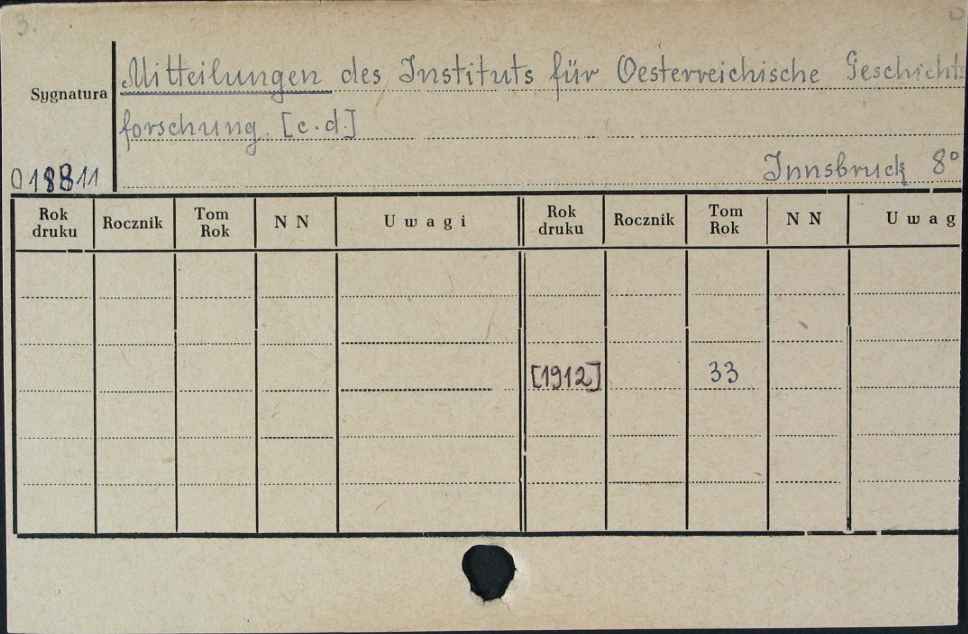 3.
Mitteilungen des Instituts für Oesterreichische Geschichts
Sygnatura
forschung. [c.d.]
018811
Innsbruck 8°
Rok druku Rocznik Tom Rok N N Uwagi Rok druku Rocznik Tom Rok N N Uwag
[1912] 33